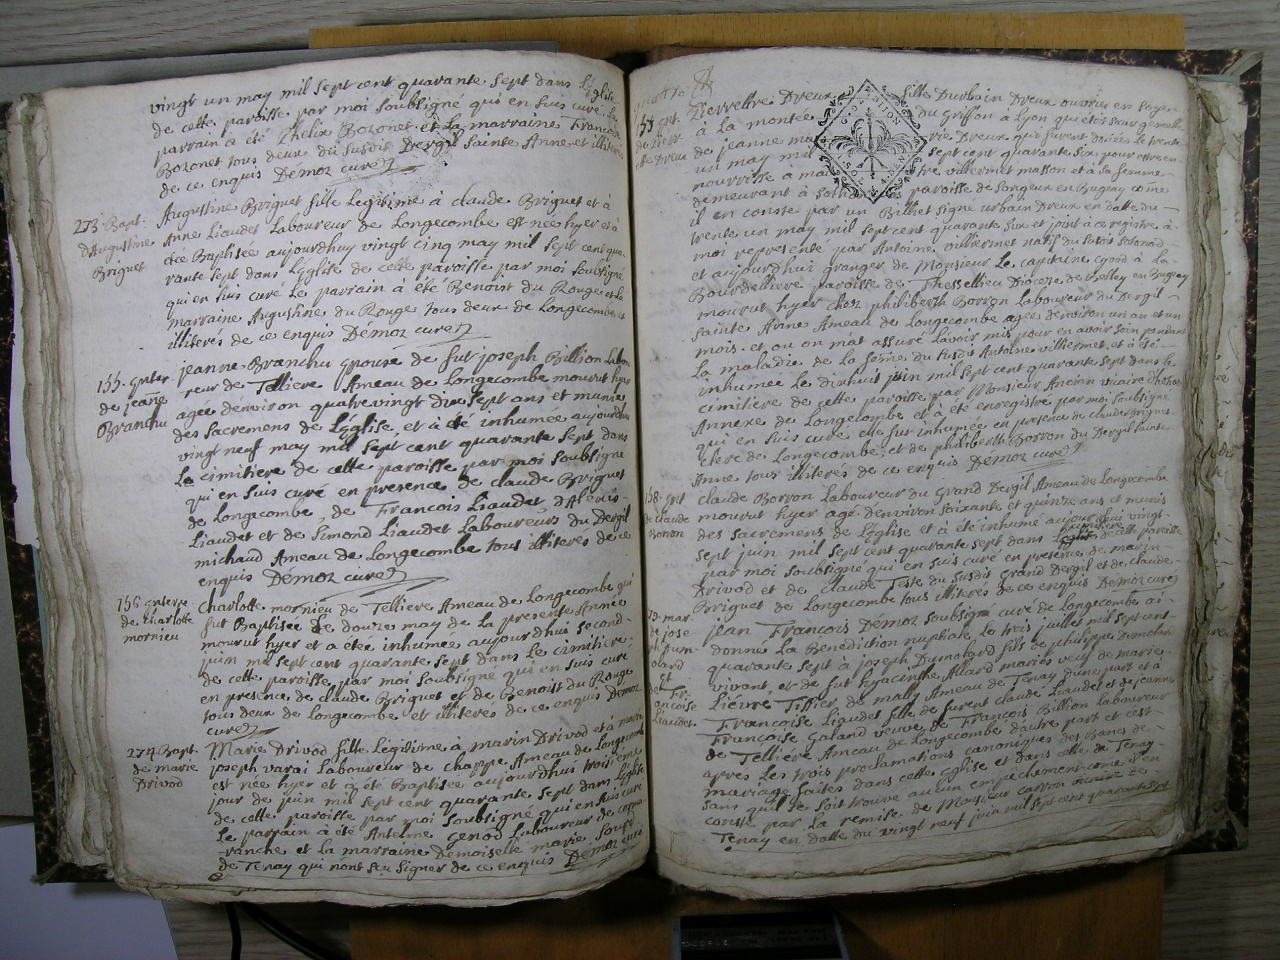 vingt un may mil sept cent quarante sept dans L'Eglise
de cette paroisse par moi soubsigné qui en suis curé, le
parrain a été Phelix Bozonet et la marraine Francoise
Bozonet tous deux du susdit Dergil Sainte Anne et illiterés
de ce enquis Démoz curé
273 Bapt.
d'Augustine
Briguet
Augustine Briguet fille Legitime à claude Briguet et à
Anne Liaudet Laboureur de Longecombe est née hyer et a
étée Baptisée aujourdhuy vingt cinq may mil sept cent qua-
rante sept dans L'Eglise de cette paroisse par moi soubsigné
qui en suis curé Le parrain a été Benoist du Rouge et la
marraine Augustine du Rouge tous deux de Longecombe et
illiterés de ce enquis Démoz curé
155. enter.
de jeane
Branchu
jeanne Branchu epouse de fut joseph Billion Labou-
reur de Telliere Ameau de Longecombe mourut hyer
agee denviron quatrevingt dix sept ans et munie
des sacremens de L'Eglise, et a été inhumée aujourdhui
vingt neuf may mil sept cent quarante sept dans
La cimitiere de cette paroisse par moi soubsigné
qui en suis curé en presence de claude Briguet
de Longecombe, de Francois Liaudet d'Alexis
Liaudet et de Simond Liaudet Laboureurs du Dergil
michaud Ameau de Longecombe tous illiterés de ce
enquis Démoz curé
156 enterre.
de Charlotte
mornieu
Charlotte mornieu de Telliere Ameau de Longecombe qui
fut Baptisée Le douze may de La presente Année
mourut hyer et a étée inhumée aujourdhui second
juin mil sept cent quarante sept dans Le cimitiere
de cette paroisse par moi soubsigné qui en suis curé
en presence de claude Briguet et de Benoist du Rouge
tous deux de Longecombe et illiterés de ce enquis Démoz
curé
274 Bapt.
de marie
Drivod
Marie Drivod fille Legitime à marin Drivod et à marie
joseph varai Laboureur de chappe Ameau de Longecombe
est née hyer et a été Baptisée aujourdhui troisième
jour de juin mil sept cent quarante sept dans L'Eglise
de cette paroisse par moi soubsigné qui en suis curé
Le parrain a été Antelme Genod Laboureur de
-ranche, et la marraine Demoiselle marie
de Tenay qui n'ont seu signer de ce enquis Démoz curé
Pierrettre Dreux fille Durbain Dreux ouvrier en soye
à La montée du Griffon à Lyon qui étoit sœur gemelle
de jeanne marie Dreux qui furent donées le trente
un may mil sept cent quarante six pour etre en
nourrisse a villermet masson et à sa femme
demeurant à paroisse de Songieu en Bugey come
il en conste par un Billiet signé urbain Dreux en datte du
trente un may mil sept cent quarante six et joint à ce registre, à
moi representé par Antoine villiermet natif du susdit
et aujourdhui granger de Monsieur Le capitaine à La
Bourdelliere paroisse de Thessellieu Diocese de Belley en Bugey
mourut hyer chez philiberth Borron Laboureur du Dergil
sainte Anne Ameau de Longecombe agee denviron un an et un
mois et ou on mat assuré lavoir mis pour en avoir soin pendant
La maladie de La femme du susdit Antoine villiermet, et a été
inhumée Le dixhuit juin mil sept cent quarante sept dans le
cimitiere de cette paroisse par Monsieur Ancian vicaire
Annexe de Longecombe et a été enregistré par moi soubsigné
qui en suis curé elle fut inhumée en presence de claude Briguet
clerc de Longecombe, et de philiberth Borron du Dergil sainte
Anne tous illiterés de ce enquis Démoz curé
158. ent
de claude
Borron
claude Borron Laboureur du Grand Dergil Ameau de Longecombe
mourut hyer agé denviron soixante et quinze ans et munis
des sacremens de L'Eglise et a été inhumé aujourdhui vingt
sept juin mil sept cent quarante sept dans cimitiere de cette paroisse
par moi soubsigné qui en suis curé en presence de marin
Drivod et de claude Teste du susdit Grand Dergil et de claude
Briguet de Longecombe tous illiterés de ce enquis Démoz curé
mar
jose
Dumoland
et
de Fr
ancoise
Liaudet
jean Francois Démoz soubsigné curé de Longecombe ai
donné La Benediction nuptiale Le trois juillet mil sept cent
quarante sept à joseph Dumolard fils de philippe Dumolard
vivant, et de fut hyacinthe Allard mariés veuf de marie
Lièvre Tissier de mally Ameau de Tenay dune part et à
Francoise Liaudet fille de furent claude Liaudet et de jeanne
Francoise Galand veuve de Francois Billion Laboureur
de Telliere Ameau de Longecombe d'autre part et c'est
apres Les trois proclamations canoniques des Bancs de
mariage faites dans cette Eglise et dans celle de Tenay
sans quil se soit trouvé aucun empechement come il en
conste par La remise de Monsieur carron vicaire de
Tenay en datte du vingt neuf juin mil sept cent quarante sept